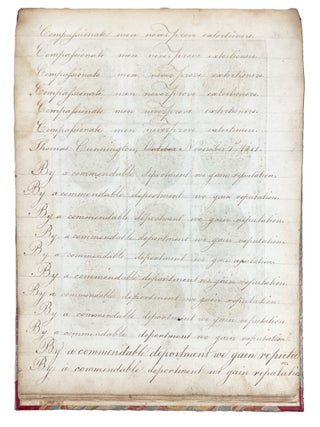 Compassionate men never prove extortioners.
Compassionate men never prove extortioners.
Compassionate men never prove extortioners.
Compassionate men never prove extortioners.
Compassionate men never prove extortioners.
Compassionate men never prove extortioners.
Thomas Cunnington, October November 1st 1811.
By a commendable deportment we gain reputation.
By a commendable deportment we gain reputation.
By a commendable deportment we gain reputation.
By a commendable deportment we gain reputation.
By a commendable deportment we gain reputation.
By a commendable deportment we gain reputation.
By a commendable deportment we gain reputation.
By a commendable deportment we gain reputation.
By a commendable deportment we gain reputation.
By a commendable deportment we gain reputa
By a commendable deportment we gain reputation